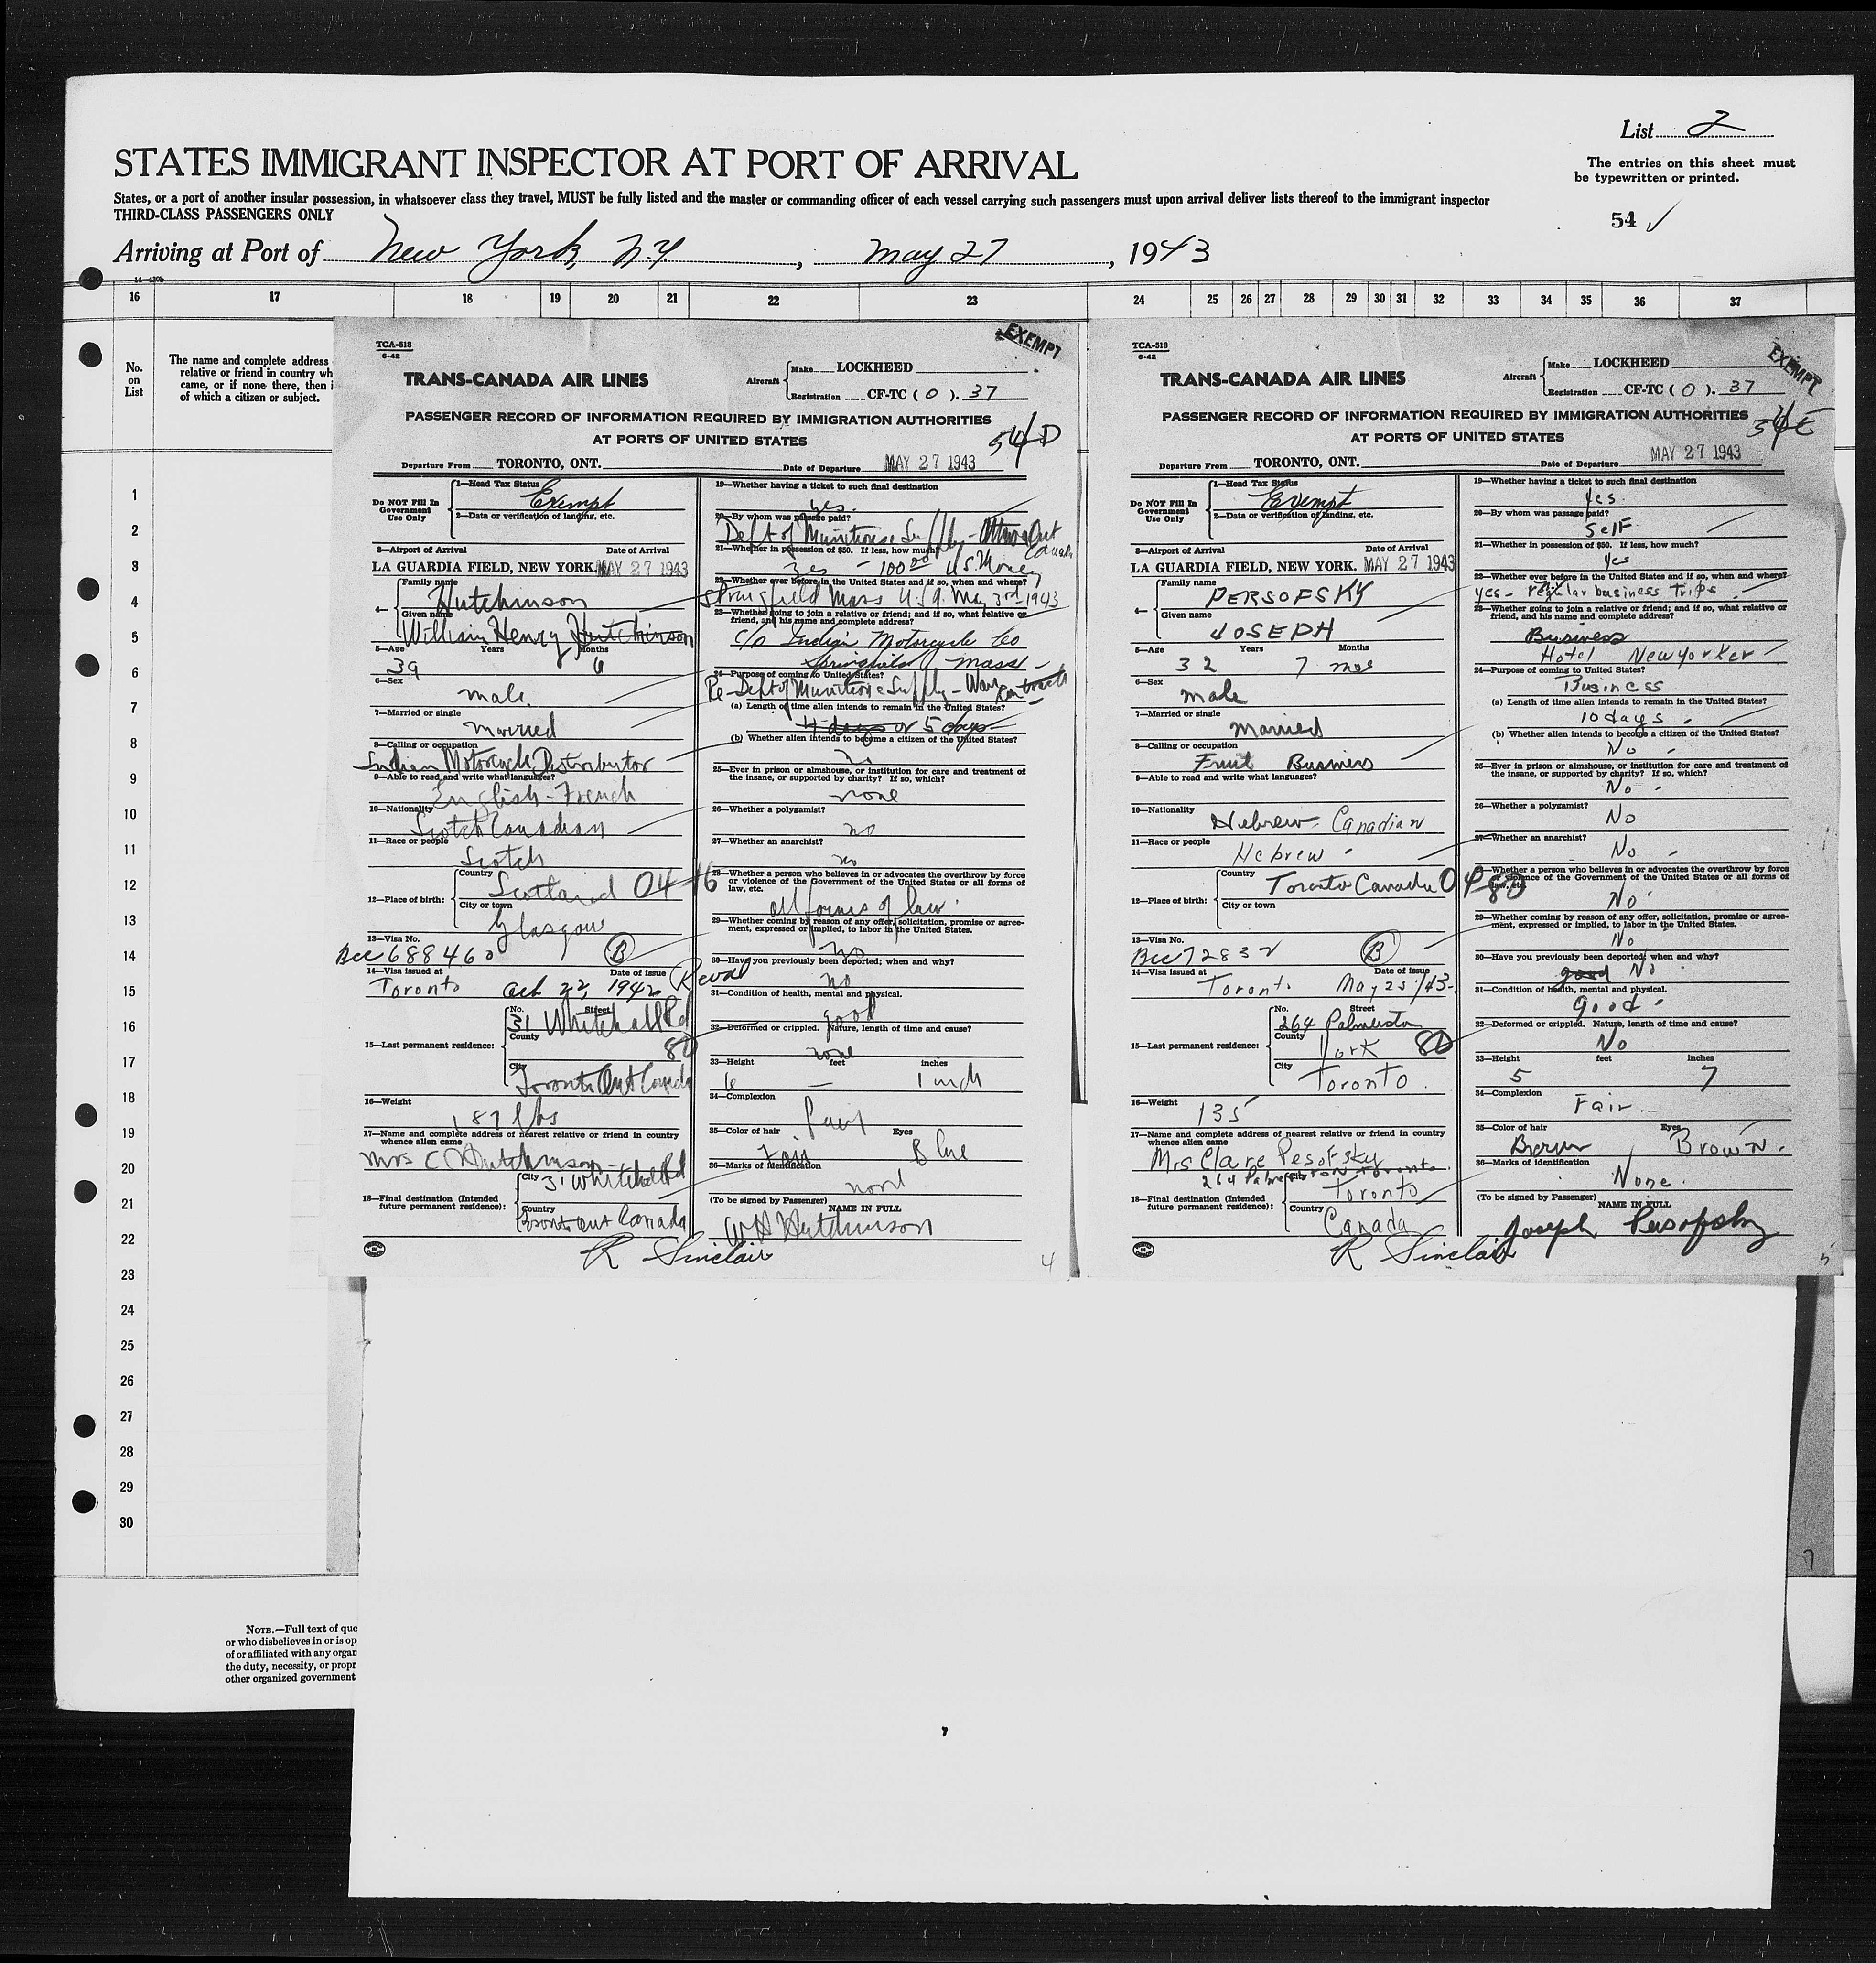 List 2
STATES IMMIGRANT INSPECTOR AT PORT OF ARRIVAL
The entries on this sheet must
be typewritten or printed.
States, or a port of another insular possession, in whatsoever class they travel, MUST be fully listed and the master or commanding officer of each vessel carrying such passengers must upon arrival deliver lists thereof to the immigrant inspector
THIRD-CLASS PASSENGERS ONLY
54 ✓
Arriving at Port of New York, N.Y. , May 27 , 1943
16 17 18 19 20 21 22 23 24 25 26 27 28 29 30 31 32 33 34 35 36 37
No.
on
List
The name and complete address
relative or friend in country wh
came, or if none there, then i
of which a citizen or subject.
1
2
3
4
5
6
7
8
9
10
11
12
13
14
15
16
17
18
19
20
21
22
23
24
25
26
27
28
29
30
TCA-518
6-42
EXEMPT
TRANS-CANADA AIR LINES
Aircraft Make LOCKHEED
Registration CF-TC ( O ). 37
PASSENGER RECORD OF INFORMATION REQUIRED BY IMMIGRATION AUTHORITIES
AT PORTS OF UNITED STATES
54D
Departure From TORONTO, ONT. Date of Departure MAY 27 1943
Do NOT Fill In
Government
Use Only
1—Head Tax Status Exempt
2—Data or verification of landing, etc.
3—Airport of Arrival Date of Arrival
LA GUARDIA FIELD, NEW YORK. MAY 27 1943
4— Family name Hutchinson
Given name William Henry Hutchinson
5—Age Years Months
39 6
6—Sex
male.
7—Married or single
married
8—Calling or occupation
Indian Motorcycle Distributor
9—Able to read and write what languages?
English - French
10—Nationality
Scotch Canadian
11—Race or people
Scotch
12—Place of birth: Country Scotland 04-16
City or town
Glasgow
13—Visa No.
Bcc 688460 B
14—Visa issued at Date of issue
Toronto Oct 22, 1942
15—Last permanent residence: No. Street
31 Whitehall Rd
County 80
City
Toronto Ont Canada
16—Weight
187 lbs
17—Name and complete address of nearest relative or friend in country
whence alien came
Mrs C Hutchinson
18—Final destination (Intended
future permanent residence): City 31 Whitehall Rd
Country
Toronto Ont Canada
R Sinclair
19—Whether having a ticket to such final destination
yes.
20—By whom was passage paid?
Dept of Munitions Supply - Ottawa Ont
Canada
21—Whether in possession of $50. If less, how much?
Yes - 100.00 U.S. Money
22—Whether ever before in the United States and if so, when and where?
Springfield Mass U.S.A. May 3rd 1943
23—Whether going to join a relative or friend; and if so, what relative or
friend, and his name and complete address?
c/o Indian Motorcycle Co
Springfield Mass -
24—Purpose of coming to United States?
Re-Dept of Munitions Supply - War Contracts
(a) Length of time alien intends to remain in the United States?
4 days or 5 days
(b) Whether alien intends to become a citizen of the United States?
no
25—Ever in prison or almshouse, or institution for care and treatment of
the insane, or supported by charity? If so, which?
none
26—Whether a polygamist?
no
27—Whether an anarchist?
no
28—Whether a person who believes in or advocates the overthrow by force
or violence of the Government of the United States or all forms of
law, etc.
all forms of law.
29—Whether coming by reason of any offer, solicitation, promise or agree-
ment, expressed or implied, to labor in the United States.
no
30—Have you previously been deported; when and why?
no
31—Condition of health, mental and physical.
good
32—Deformed or crippled. Nature, length of time and cause?
none
33—Height feet inches
6 — 1 inch
34—Complexion
Fair
35—Color of hair Eyes
Fair Blue
36—Marks of identification
none
(To be signed by Passenger)
NAME IN FULL
W H Hutchinson
4
TCA-518
6-42
EXEMPT
TRANS-CANADA AIR LINES
Aircraft Make LOCKHEED
Registration CF-TC ( O ). 37
PASSENGER RECORD OF INFORMATION REQUIRED BY IMMIGRATION AUTHORITIES
AT PORTS OF UNITED STATES
54E
Departure From TORONTO, ONT. Date of Departure MAY 27 1943
Do NOT Fill In
Government
Use Only
1—Head Tax Status Exempt
2—Data or verification of landing, etc.
3—Airport of Arrival Date of Arrival
LA GUARDIA FIELD, NEW YORK. MAY 27 1943
4— Family name
PERSOFSKY
Given name
JOSEPH
5—Age Years Months
32 7 mos
6—Sex
male
7—Married or single
Married
8—Calling or occupation
Fruit Business
9—Able to read and write what languages?
10—Nationality
Hebrew. Canadian
11—Race or people
Hebrew
12—Place of birth: Country
Toronto Canada 04-80
City or town
13—Visa No.
Bcc 72832 B
14—Visa issued at Date of issue
Toronto May 25/43
15—Last permanent residence: No. Street
264 Palmerston
County York 80
City
Toronto.
16—Weight
135
17—Name and complete address of nearest relative or friend in country
whence alien came
Mrs Clare Pesofsky
264 Palmerston Toronto.
18—Final destination (Intended
future permanent residence): City
Toronto
Country
Canada
R Sinclair
19—Whether having a ticket to such final destination
Yes.
20—By whom was passage paid?
Self
21—Whether in possession of $50. If less, how much?
Yes
22—Whether ever before in the United States and if so, when and where?
Yes - regular business trips.
23—Whether going to join a relative or friend; and if so, what relative or
friend, and his name and complete address?
Business
Hotel New Yorker
24—Purpose of coming to United States?
Business
(a) Length of time alien intends to remain in the United States?
10 days
(b) Whether alien intends to become a citizen of the United States?
No
25—Ever in prison or almshouse, or institution for care and treatment of
the insane, or supported by charity? If so, which?
No
26—Whether a polygamist?
No
27—Whether an anarchist?
No
28—Whether a person who believes in or advocates the overthrow by force
or violence of the Government of the United States or all forms of
law, etc.
No
29—Whether coming by reason of any offer, solicitation, promise or agree-
ment, expressed or implied, to labor in the United States.
No
30—Have you previously been deported; when and why?
good No
31—Condition of health, mental and physical.
good
32—Deformed or crippled. Nature, length of time and cause?
No
33—Height feet inches
5 7
34—Complexion
Fair
35—Color of hair Eyes
Brown Brown.
36—Marks of identification
None.
(To be signed by Passenger)
NAME IN FULL
Joseph Pesofsky
5
7
NOTE.—Full text of que
or who disbelieves in or is op
of or affiliated with any organ
the duty, necessity, or propr
other organized government